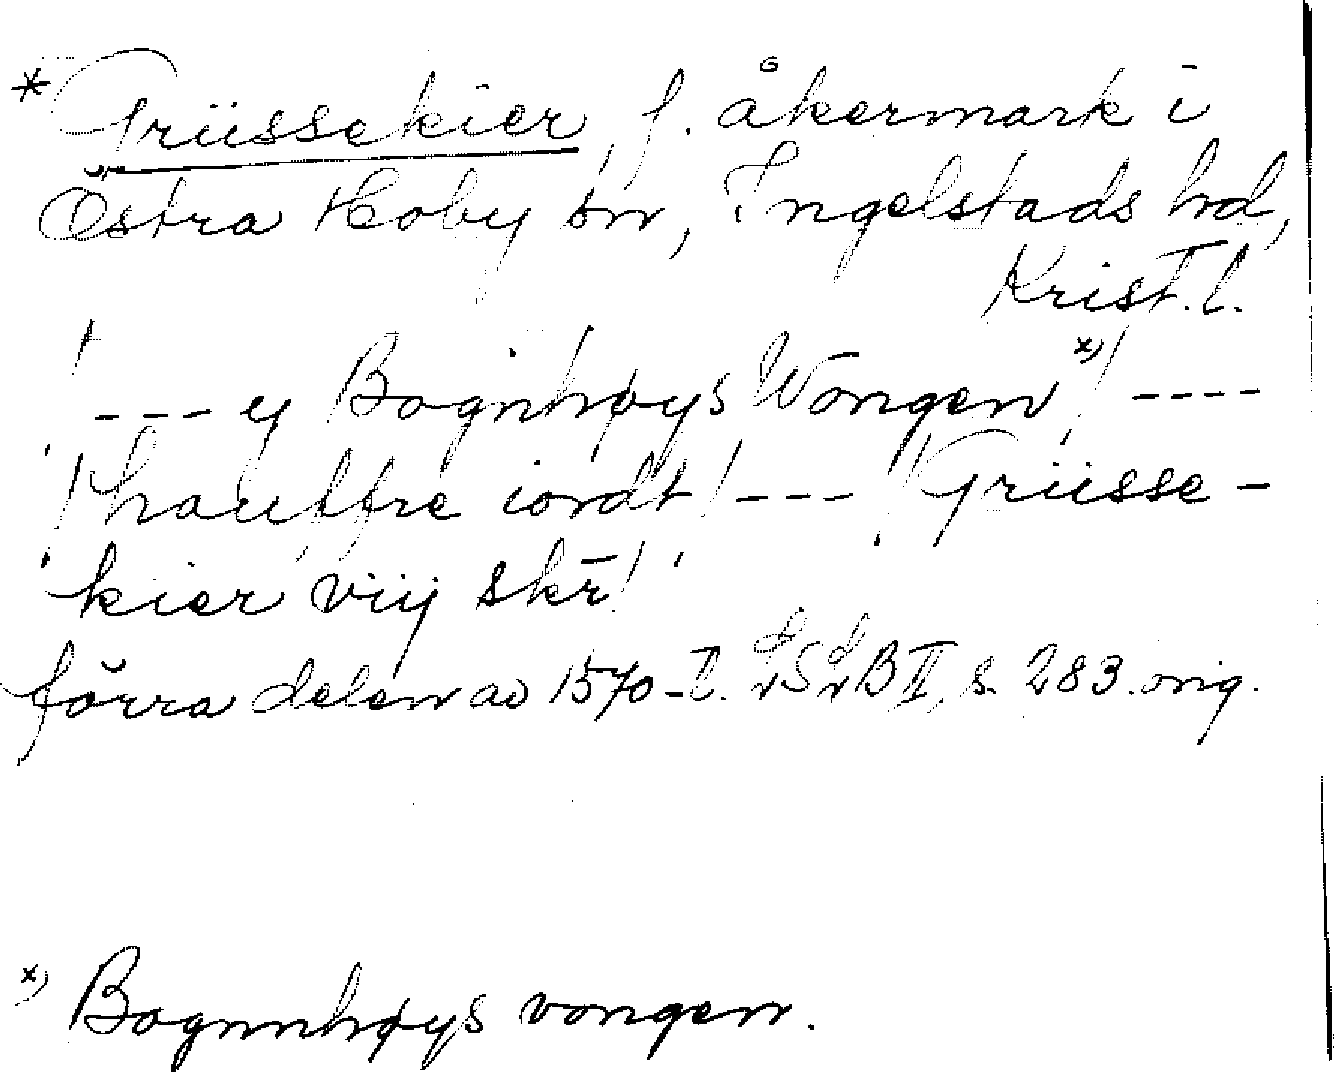 * Grüssekier, f. åkermark i
Östra Hoby sn, Ingelstads hd,
Krist. l.
--- y Bognhøys Wongen x) / ----
/ hauffre iordt / --- / Grüsse-
kier viij skr̄ /
förra delen av 1570-t. LSLB II, s. 283. orig.
x) Bognnhøys vongen.